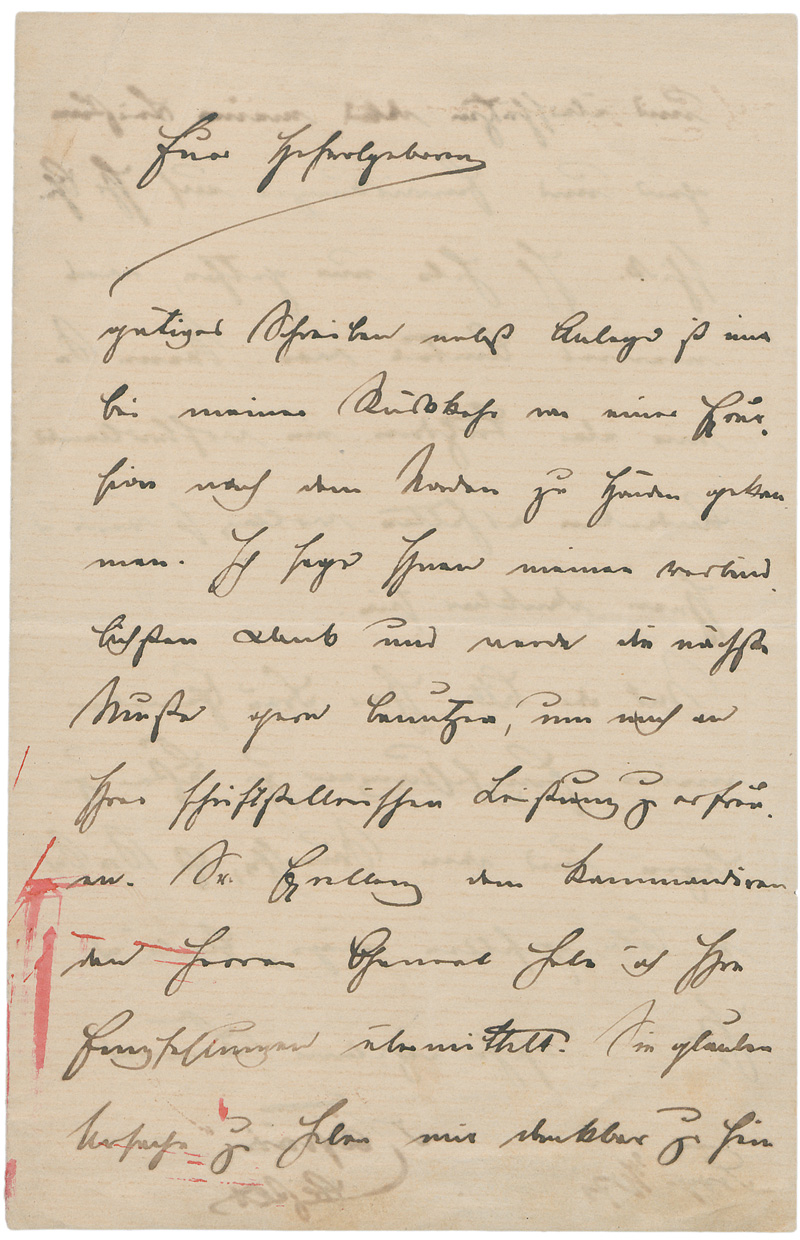 Euer Hochwolgeboren
gütiges Schreiben nebst Anlage ist mir
bei meiner Rückkehr von einer Excur-
sion nach dem Norden zu Händen gekom
men. Ich sage Ihnen meinen verbind-
lichsten Dank und werde die nächste
Muße gern benutzen, um mich an
Ihrer schriftstellerischen Leistung zu erfreu-
en. Sr. Excellenz dem kommandiren
den Herren General habe ich Ihre
Empfehlungen übermittelt. Sie glauben
Ursache zu haben mir dankbar zu sein